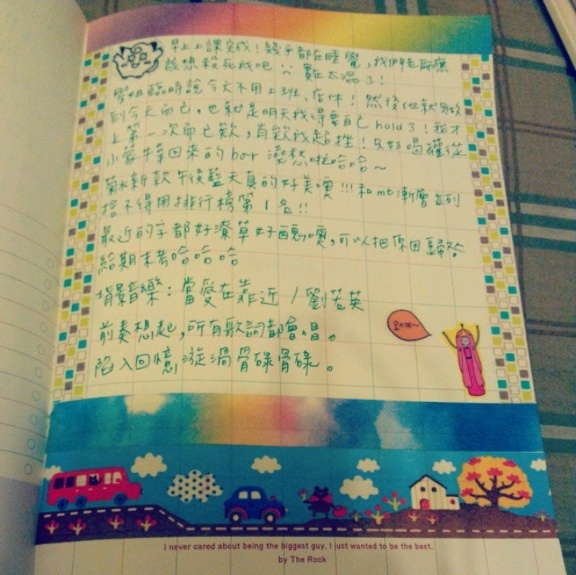 早上上課完成！幾乎都在睡覺，我們老師應
該想殺死我吧 實在太濕了！
學姐臨時說今天不用上班，店休！然後他就只做
到今天而已，也就是明天我得要自己hold了！我才
上第一次而已欸，自欸我起挫！只好喝罐從
小蓉牛拿回來的bar 澳愁啦哈哈～
菊水新款午後藍天真的好美噢!!!和mt漸層並列
捨不得用排行榜第1名!!
最近的字都好潦草好醜噢，可以把原因歸咎
給期末嗎哈哈哈
背景音樂：當愛在靠近／劉若英
前奏想起，所有歌詞都會唱。
陷入回憶漩渦骨碌骨碌。
I never cared about being the biggest guy, I just wanted to be the best.
by The Rock